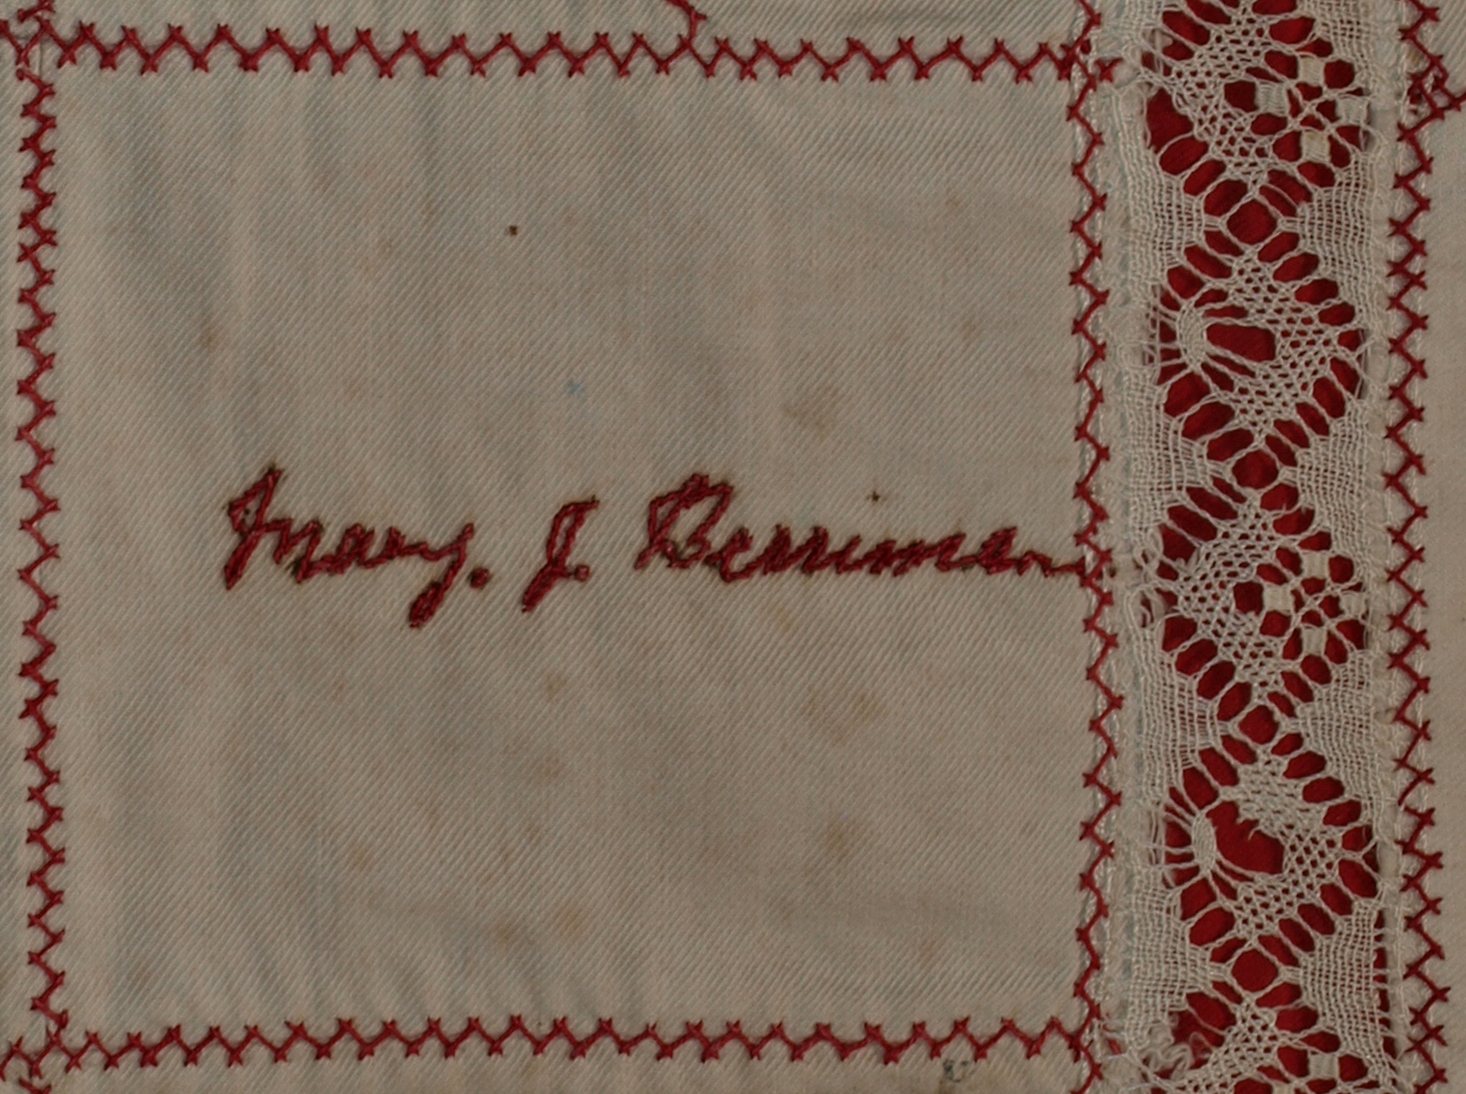 Mary. J. Berriman